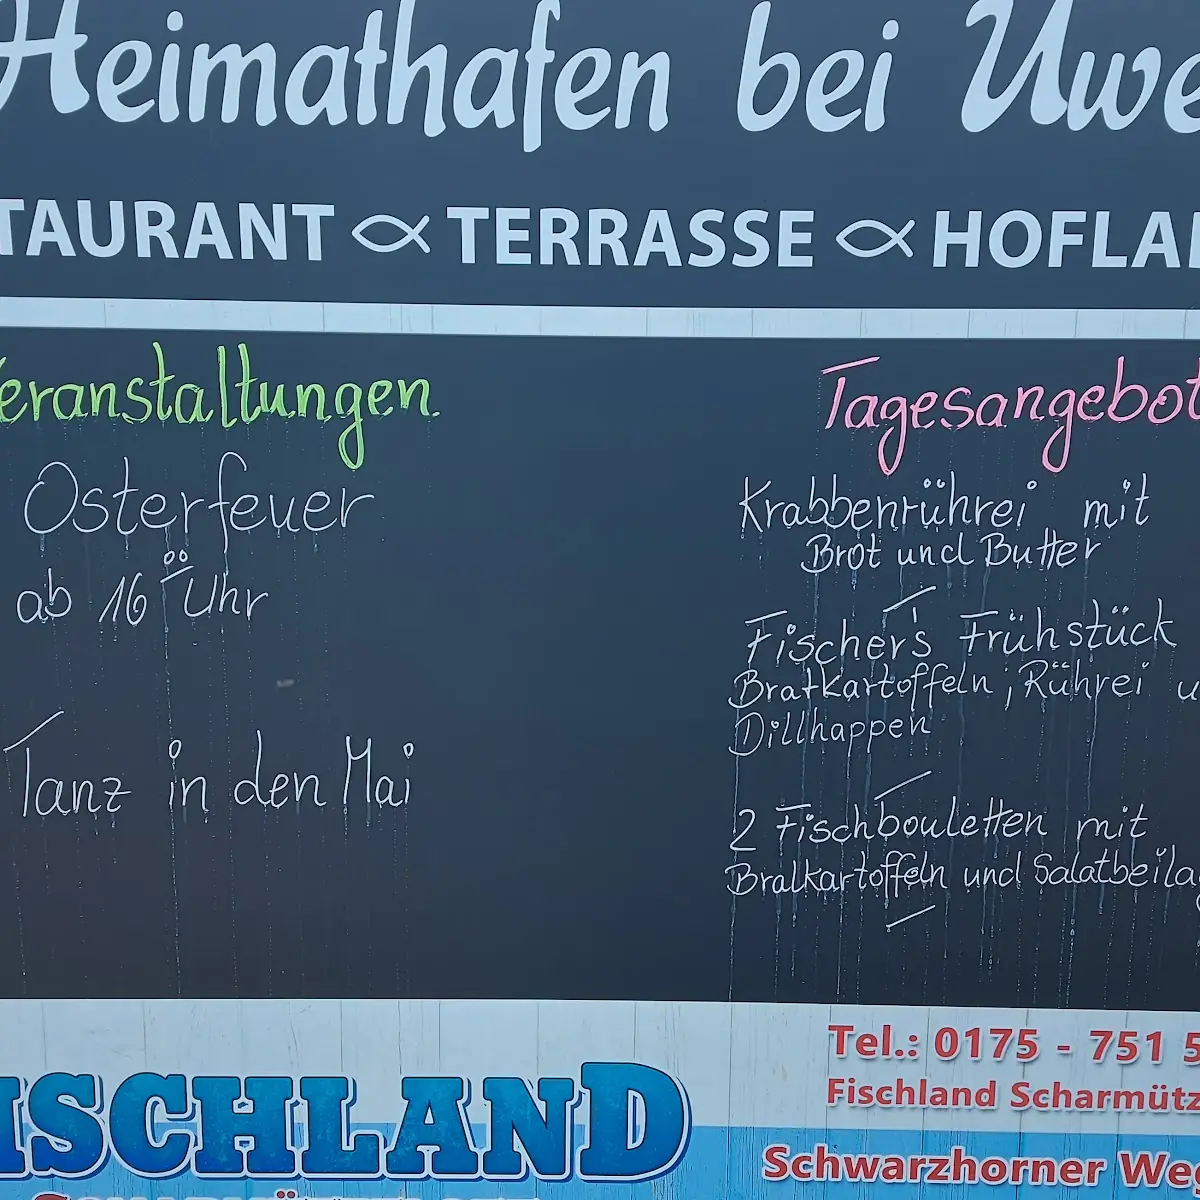 Heimathafen bei Uwe
TAURANT TERRASSE HOFLA
Veranstaltungen.
Osterfeuer
ab 16 Uhr
Tanz in den Mai
Tagesangebot
Krabbenrührei mit
Brot und Butter
Fischer's Frühstück
Bratkartoffeln, Rührei u
Dillhappen
2 Fischbouletten mit
Bratkartoffeln und Salatbeila
Tel.: 0175 - 751 5
Fischland Scharmütz
ISCHLAND
Schwarzhorner We